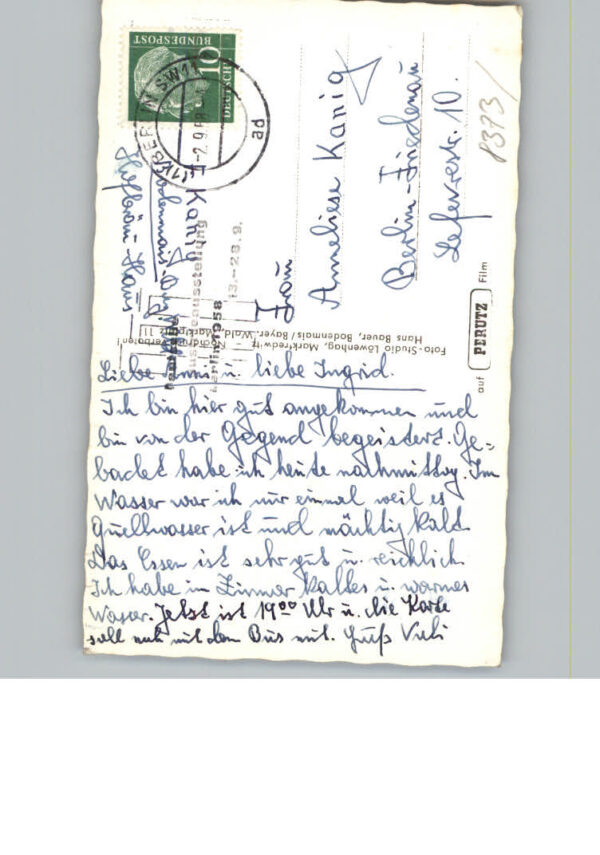 Liebe Anni u. liebe Ingrid.
Ich bin hier gut angekommen und
bin von der Gegend begeistert. Ge-
badet habe ich heute nachmittag. Im
Wasser war ich nur einmal weil es
Quellwasser ist und mächtig kalt.
Das Essen ist sehr gut u. reichlich.
Ich habe im Zimmer kaltes u. warmes
Wasser. Jetzt ist 19⁰⁰ Uhr u. die Karte
soll noch mit dem Bus mit. Gruß
Frau
Anneliese Kanig
Berlin-Friedenau
Lefevrestr. 10.
8373/
F. Kanig
Bodenmais
Hofbräu-Haus
10
DEUTSCHE
BUNDESPOST
BERLIN SW11
ad
13.-28.9.
Berlin 1958
Foto-Studio Löwenhag, Marktredwitz
Hans Bauer, Bodenmais / Bayer. Wald, Marktplatz 11
auf PERUTZ Film